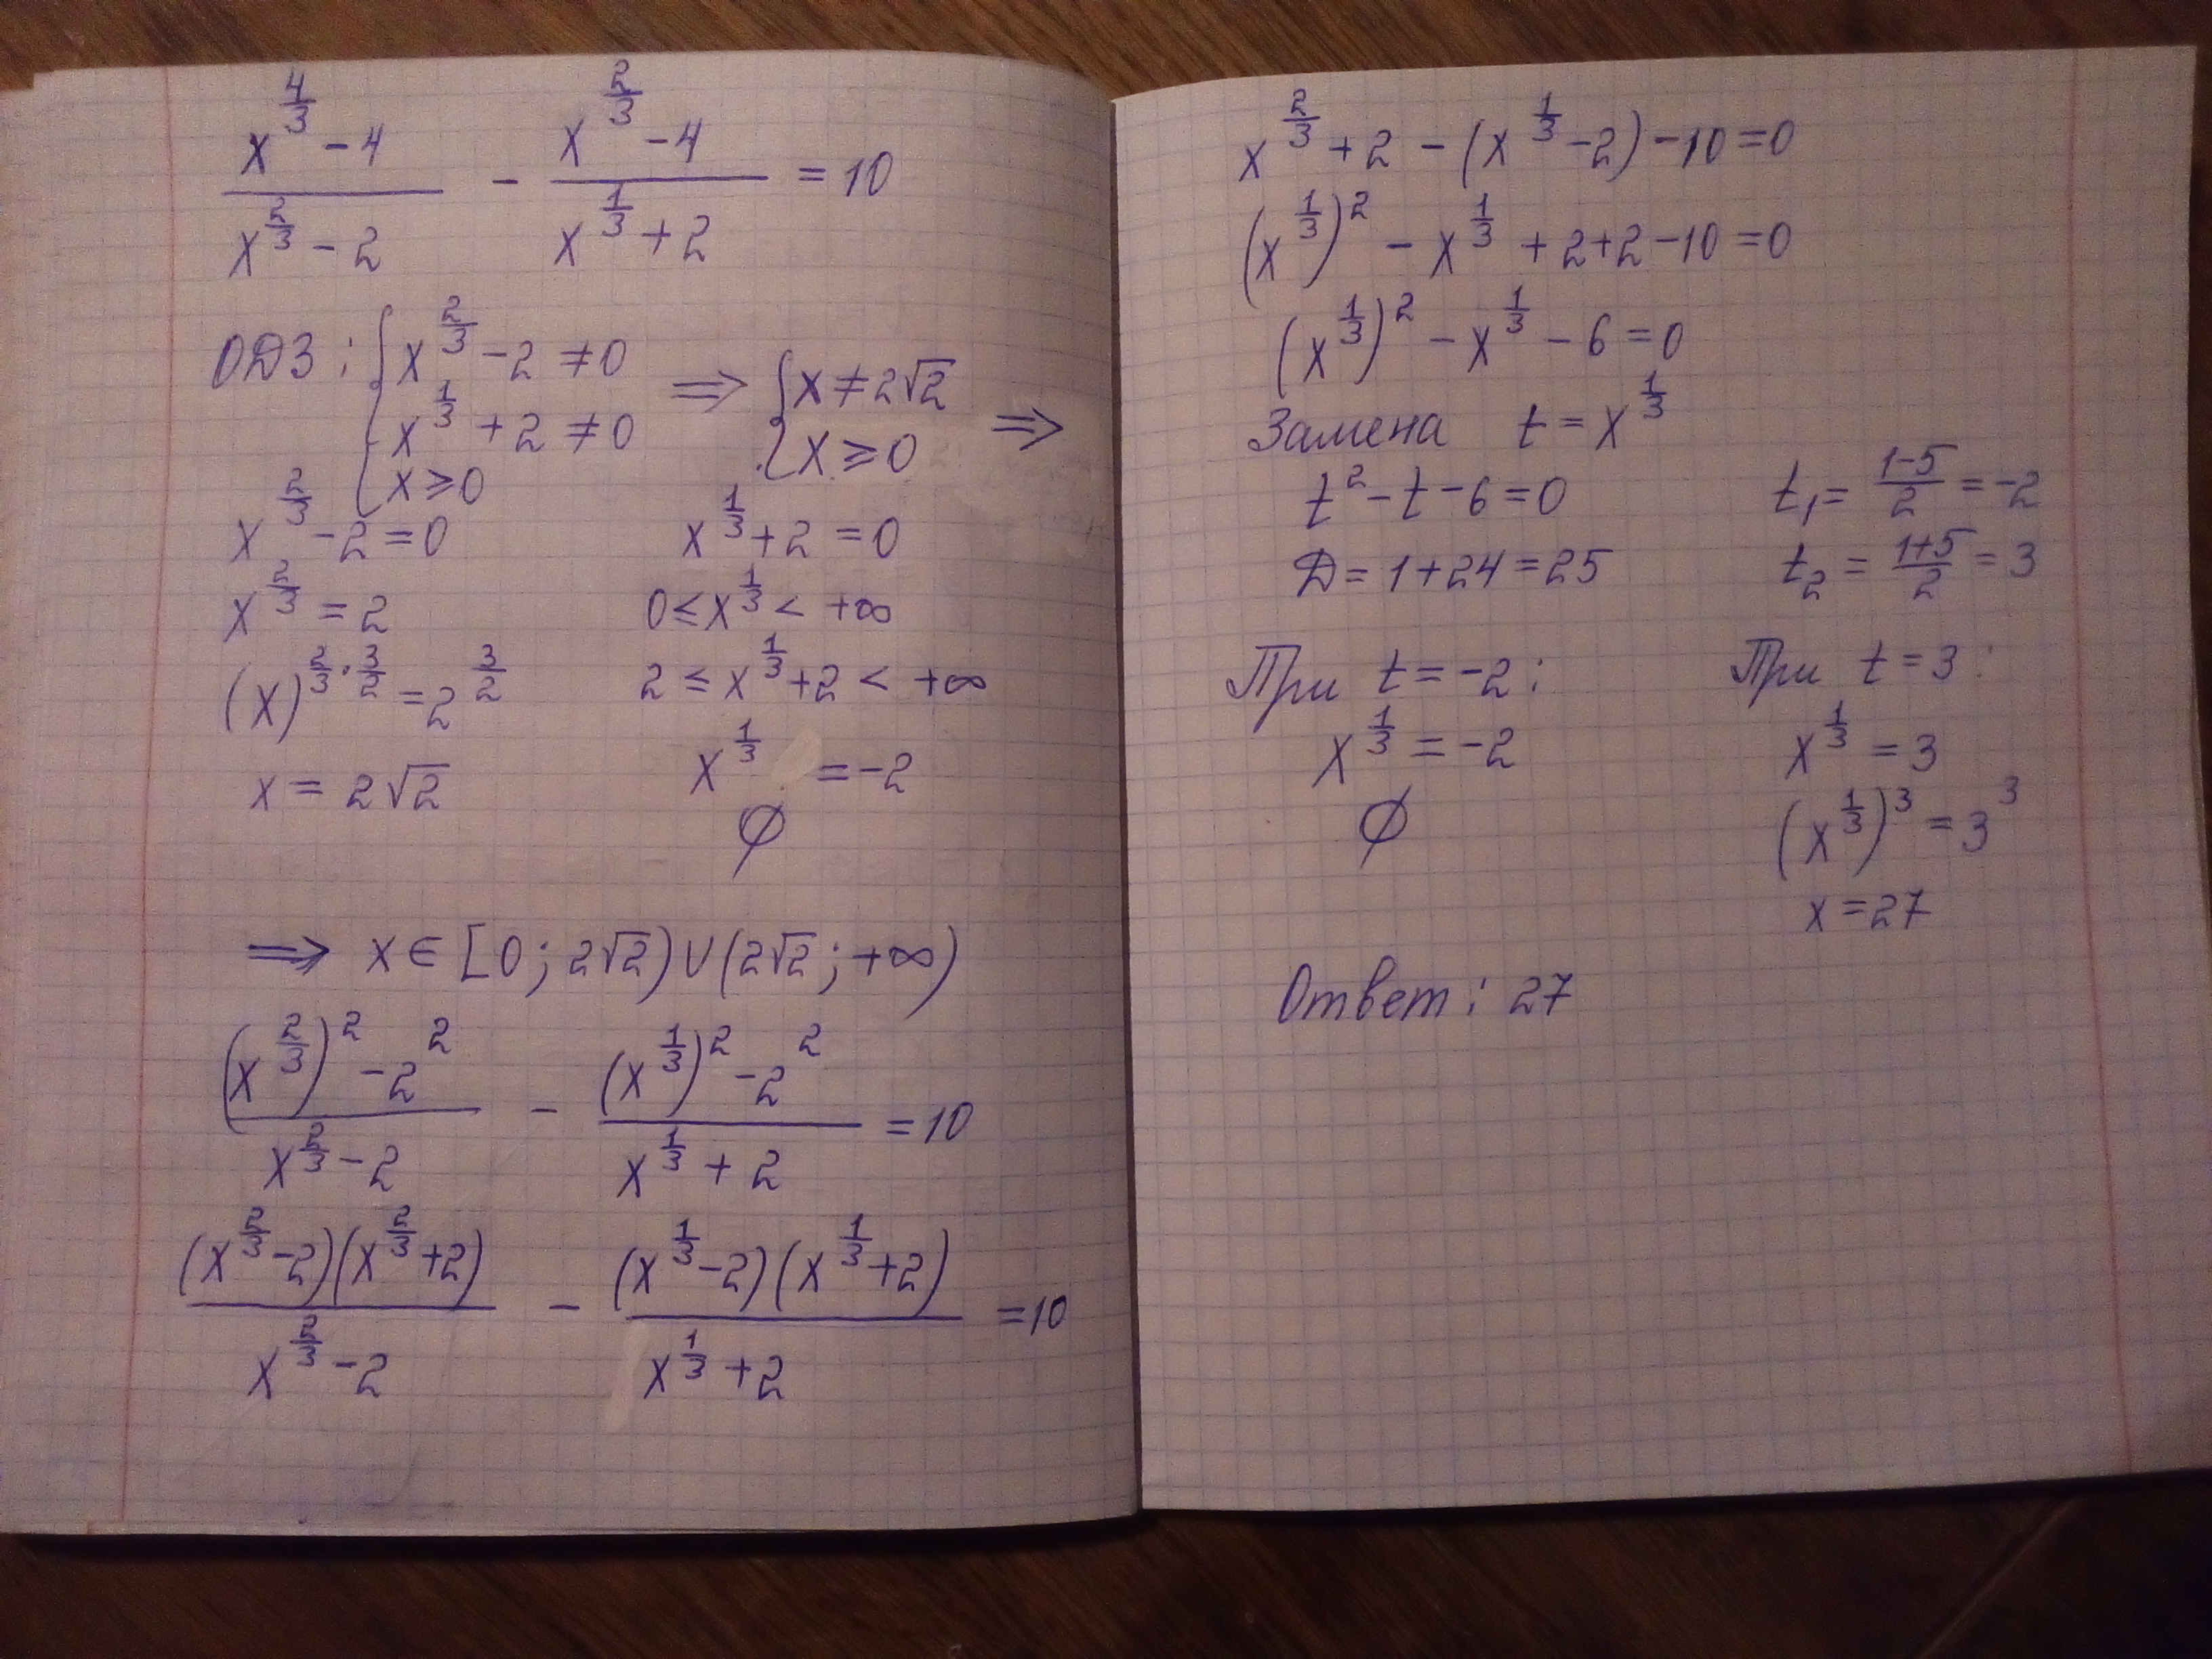 x^(4/3) - 4 / x^(2/3) - 2 - x^(2/3) - 4 / x^(1/3) + 2 = 10
ОДЗ: { x^(2/3) - 2 ≠ 0
x^(1/3) + 2 ≠ 0
x ≥ 0
⇒ { x ≠ 2√2
x ≥ 0 ⇒
x^(2/3) - 2 = 0
x^(2/3) = 2
(x)^(2/3 · 3/2) = 2^(3/2)
x = 2√2
x^(1/3) + 2 = 0
0 ≤ x^(1/3) < +∞
2 ≤ x^(1/3) + 2 < +∞
x^(1/3) = -2
∅
⇒ x ∈ [0; 2√2) ∪ (2√2; +∞)
(x^(2/3))^2 - 2^2 / x^(2/3) - 2 - (x^(1/3))^2 - 2^2 / x^(1/3) + 2 = 10
(x^(2/3) - 2)(x^(2/3) + 2) / x^(2/3) - 2 - (x^(1/3) - 2)(x^(1/3) + 2) / x^(1/3) + 2 = 10
x^(2/3) + 2 - (x^(1/3) - 2) - 10 = 0
(x^(1/3))^2 - x^(1/3) + 2 + 2 - 10 = 0
(x^(1/3))^2 - x^(1/3) - 6 = 0
Замена t = x^(1/3)
t^2 - t - 6 = 0
Д = 1 + 24 = 25
t₁ = 1-5 / 2 = -2
t₂ = 1+5 / 2 = 3
При t = -2:
x^(1/3) = -2
∅
При t = 3:
x^(1/3) = 3
(x^(1/3))^3 = 3^3
x = 27
Ответ: 27